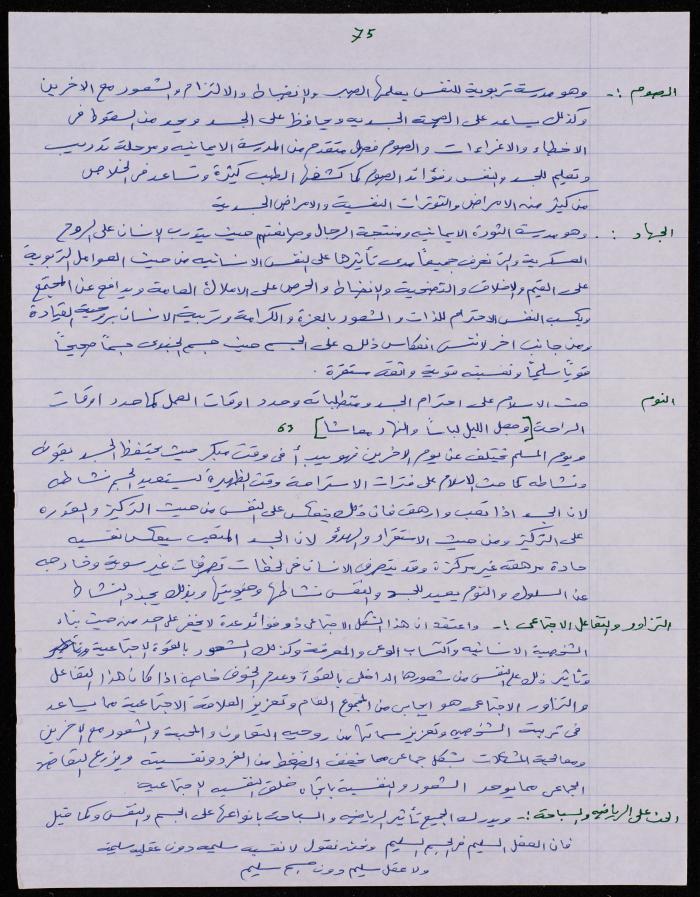 75
الصوم :- وهو مدرسة تربوية للنفس يعلمها الصبر والانضباط والالتزام والشعور مع الاخرين
وكذلك يساعد على الصحة الجسدية ويحافظ على الجسد ويحد من السقوط في
الاخطاء والاغراءات والصوم فصل متقدم من المدرسة الايمانيه ومرحلة تدريب
وتعليم للجسد والنفس وفوائد الصوم كما كشفها الطب كثيرة وتساعد في الخلاص
من كثير من الامراض والتوترات النفسية والامراض الجسدية
الجهاد : وهو مدرسة الثورة الايمانيه ومنتجة الرجال وصانعتهم حيث يتدرب الانسان على الروح
العسكرية والتي نعرف جميعاً مدى تأثيرها على النفس الانسانيه من حيث العوامل التربوية
على القيم والاخلاق والتضحية والانضباط والحرص على الاملاك العامة ويدافع عن المجتمع
ويكسب النفس الاحترام للذات والشعور بالعزة والكرامة وتربية الانسان بروحية القيادة
ومن جانب اخر لا ننسى انعكاس ذلك على الجسم حيث جسم الجندي جسماً صحيحاً
قوياً سليماً ونفسيته قوية واثقة مستقرة .
النوم حث الاسلام على احترام الجسد ومتطلباته وحدد اوقات العمل كما حدد اوقات
الراحة [وجعل الليل لباساً والنهار معاشاً] 63
ويوم المسلم يختلف عن يوم الاخرين فهو يبدأ في وقت مبكر حيث يحتفظ الجسد بقوته
ونشاطه كما حث الاسلام على فترات الاستراحة وقت الظهيرة ليستعيد الجسم نشاطه
لان الجسد اذا تعب وارهق فان ذلك ينعكس على النفس من حيث التركيز والقدره
على التركيز ومن حيث الاستقرار والهدوء لان الجسد المتعب يعكس نفسيه
حادة مرهقة غير مركزة وقد يتصرف الانسان في لحظات تصرفات غير سوية وخارجه
عن السلوك والنوم يعيد للجسد والنفس نشاطها وحيويتها وبذلك يجدد النشاط
التزاور والتفاعل الاجتماعي :- واعتقد ان هذا الشكل الاجتماعي ذو فوائد عدة لا يخفى على احد من حيث بناء
الشخصية الانسانيه واكتساب الوعي والمعرفة وكذلك الشعور بالقوة الاجتماعية
وتأثير ذلك على النفس من شعورها الداخلي بالقوة وعدم الخوف خاصة اذا كان هذا التفاعل
والتزاور الاجتماعي هو ايجابي من المجموع العام وتعزيز العلاقة الاجتماعية مما يساعد
في تربية الشخصيه وتعزيز سماتها من روحيه التعاون والمحبة والشعور مع الاخرين
ومعالجة المشكلات بشكل جماعي مما يخفف الضغط من الفرد ونفسيته ويزرع التقاصه
الجماعي مما يوحد الشعور والنفسية باتجاه خلق النفسيه الاجتماعيه
الحث على الرياضه والسباحة :- ويدرك الجميع تأثير الرياضه والسباحة بانواعها على الجسم والنفس وكما قيل
فان العقل السليم في الجسم السليم ونحن نقول لا نفسيه سليمه دون عقليه سليمة
ولا عقل سليم دون جسم سليم